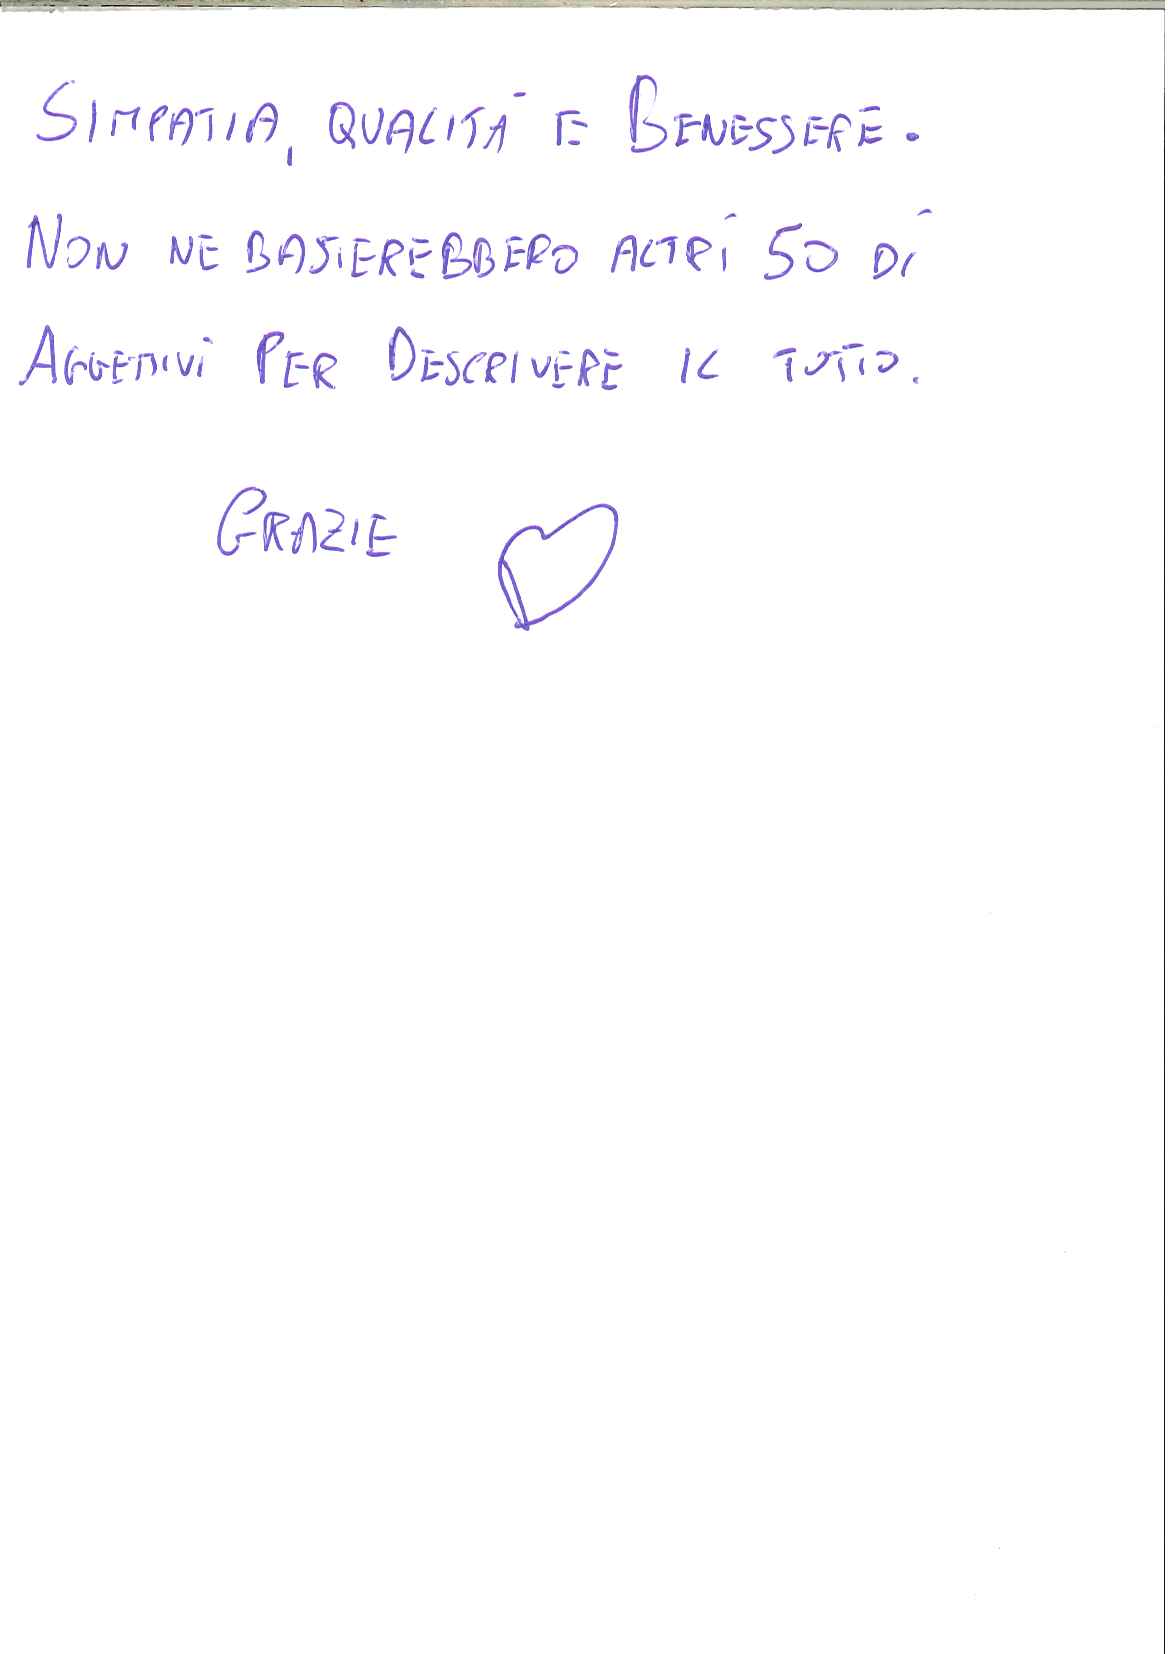 SIMPATIA, QUALITÀ E BENESSERE.
NON NE BASTEREBBERO ALTRI 50 DI
AGGETTIVI PER DESCRIVERE IL TUTTO.
GRAZIE